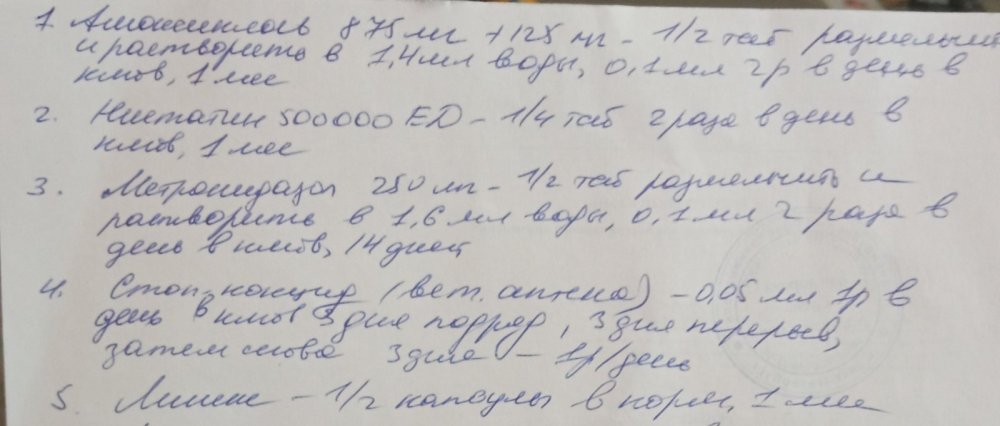 1. Амоксиклав 875мг +125мг – 1/2 таб размельчить
и растворить в 1,4мл воды, 0,1мл 2р в день в
клюв, 1 мес
2. Нистатин 500000 ЕД – 1/4 таб 2 раза в день в
клюв, 1 мес
3. Метронидазол 250 мг – 1/2 таб размельчить и
растворить в 1,6 мл воды, 0,1 мл 2 раза в
день в клюв, 14 дней
4. Стоп-кокцид (вет. аптека) – 0,05 мл 1р в
день в клюв 3 дня подряд, 3 дня перерыв,
затем снова 3 дня – 1р/день
5. Линекс – 1/2 капсулы в корм, 1 мес